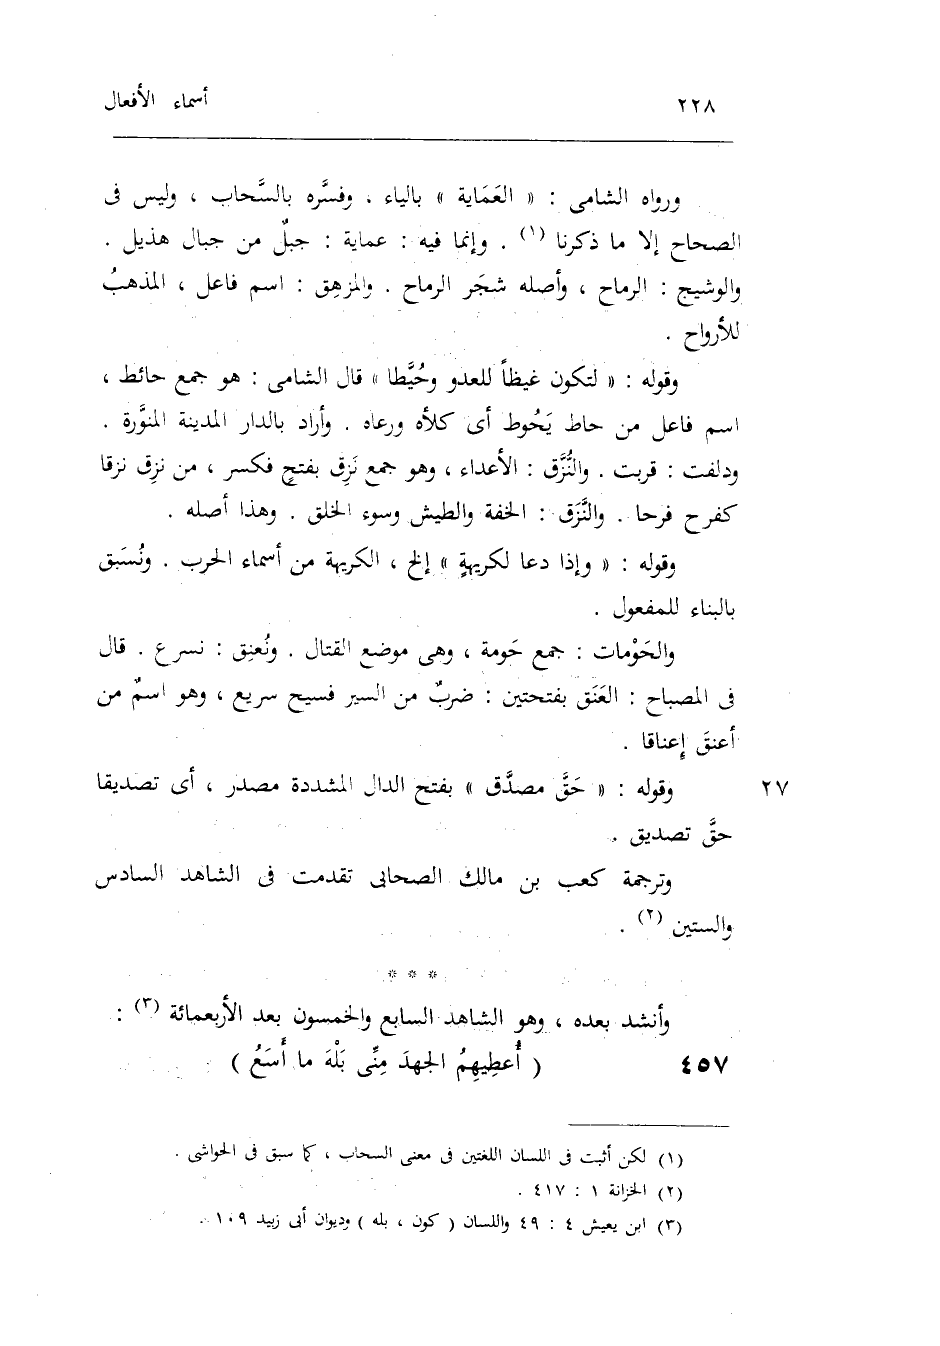 ٢٢٨ أسماء الأفعال
ورواه الشامى : « العَمَاية » بالياء ، وفسَّره بالسَّحاب ، وليس فى
الصحاح إلا ما ذكرنا (١) . وإنما فيه : عماية : جبلٌ من جبال هذيل .
والوشيج : الرماح ، وأصله شجَر الرماح . والمزهِق : اسم فاعل ، المذهبُ
للأرواح .
وقوله : « لتكون غيظاً للعدو وحُيَّطا » قال الشامى : هو جمع حائط ،
اسم فاعل من حاط يَحُوط أى كلأه ورعاه . وأراد بالدار المدينة المنوَّرة .
ودلفت : قربت . والنُّزَّق : الأعداء ، وهو جمع نَزِق بفتحٍ فكسر ، من نزِق نزقا
كفرح فرحا . والنَّزَق : الخفة والطيش وسوء الخلق . وهذا أصله .
وقوله : « وإذا دعا لكريهةٍ » إلخ ، الكريهة من أسماء الحرب . ونُسَبق
بالبناء للمفعول .
والحَوْمات : جمع حَومة ، وهى موضع القتال . ونُعنِق : نسرع . قال
فى المصباح : العَنَق بفتحتين : ضربٌ من السير فسيح سريع ، وهو اسمٌ من
أعنقَ إعناقا .
وقوله : « حَقَّ مصدَّق » بفتح الدال المشددة مصدر ، أى تصديقا ٢٧
حقَّ تصديق .
وترجمة كعب بن مالك الصحابى تقدمت فى الشاهد السادس
والستين (٢) .
* * *
وأنشد بعده ، وهو الشاهد السابع والخمسون بعد الأربعمائة (٣) :
٤٥٧ ( أُعطِيهِمُ الجهدَ مِنِّى بَلْهَ ما أَسَعُ )
(١) لكن أثبت فى اللسان اللغتين فى معنى السحاب ، كما سبق فى الحواشى .
(٢) الخزانة ١ : ٤١٧ .
(٣) ابن يعيش ٤ : ٤٩ واللسان ( كون ، بله ) وديوان أبى زبيد ١٠٩ .